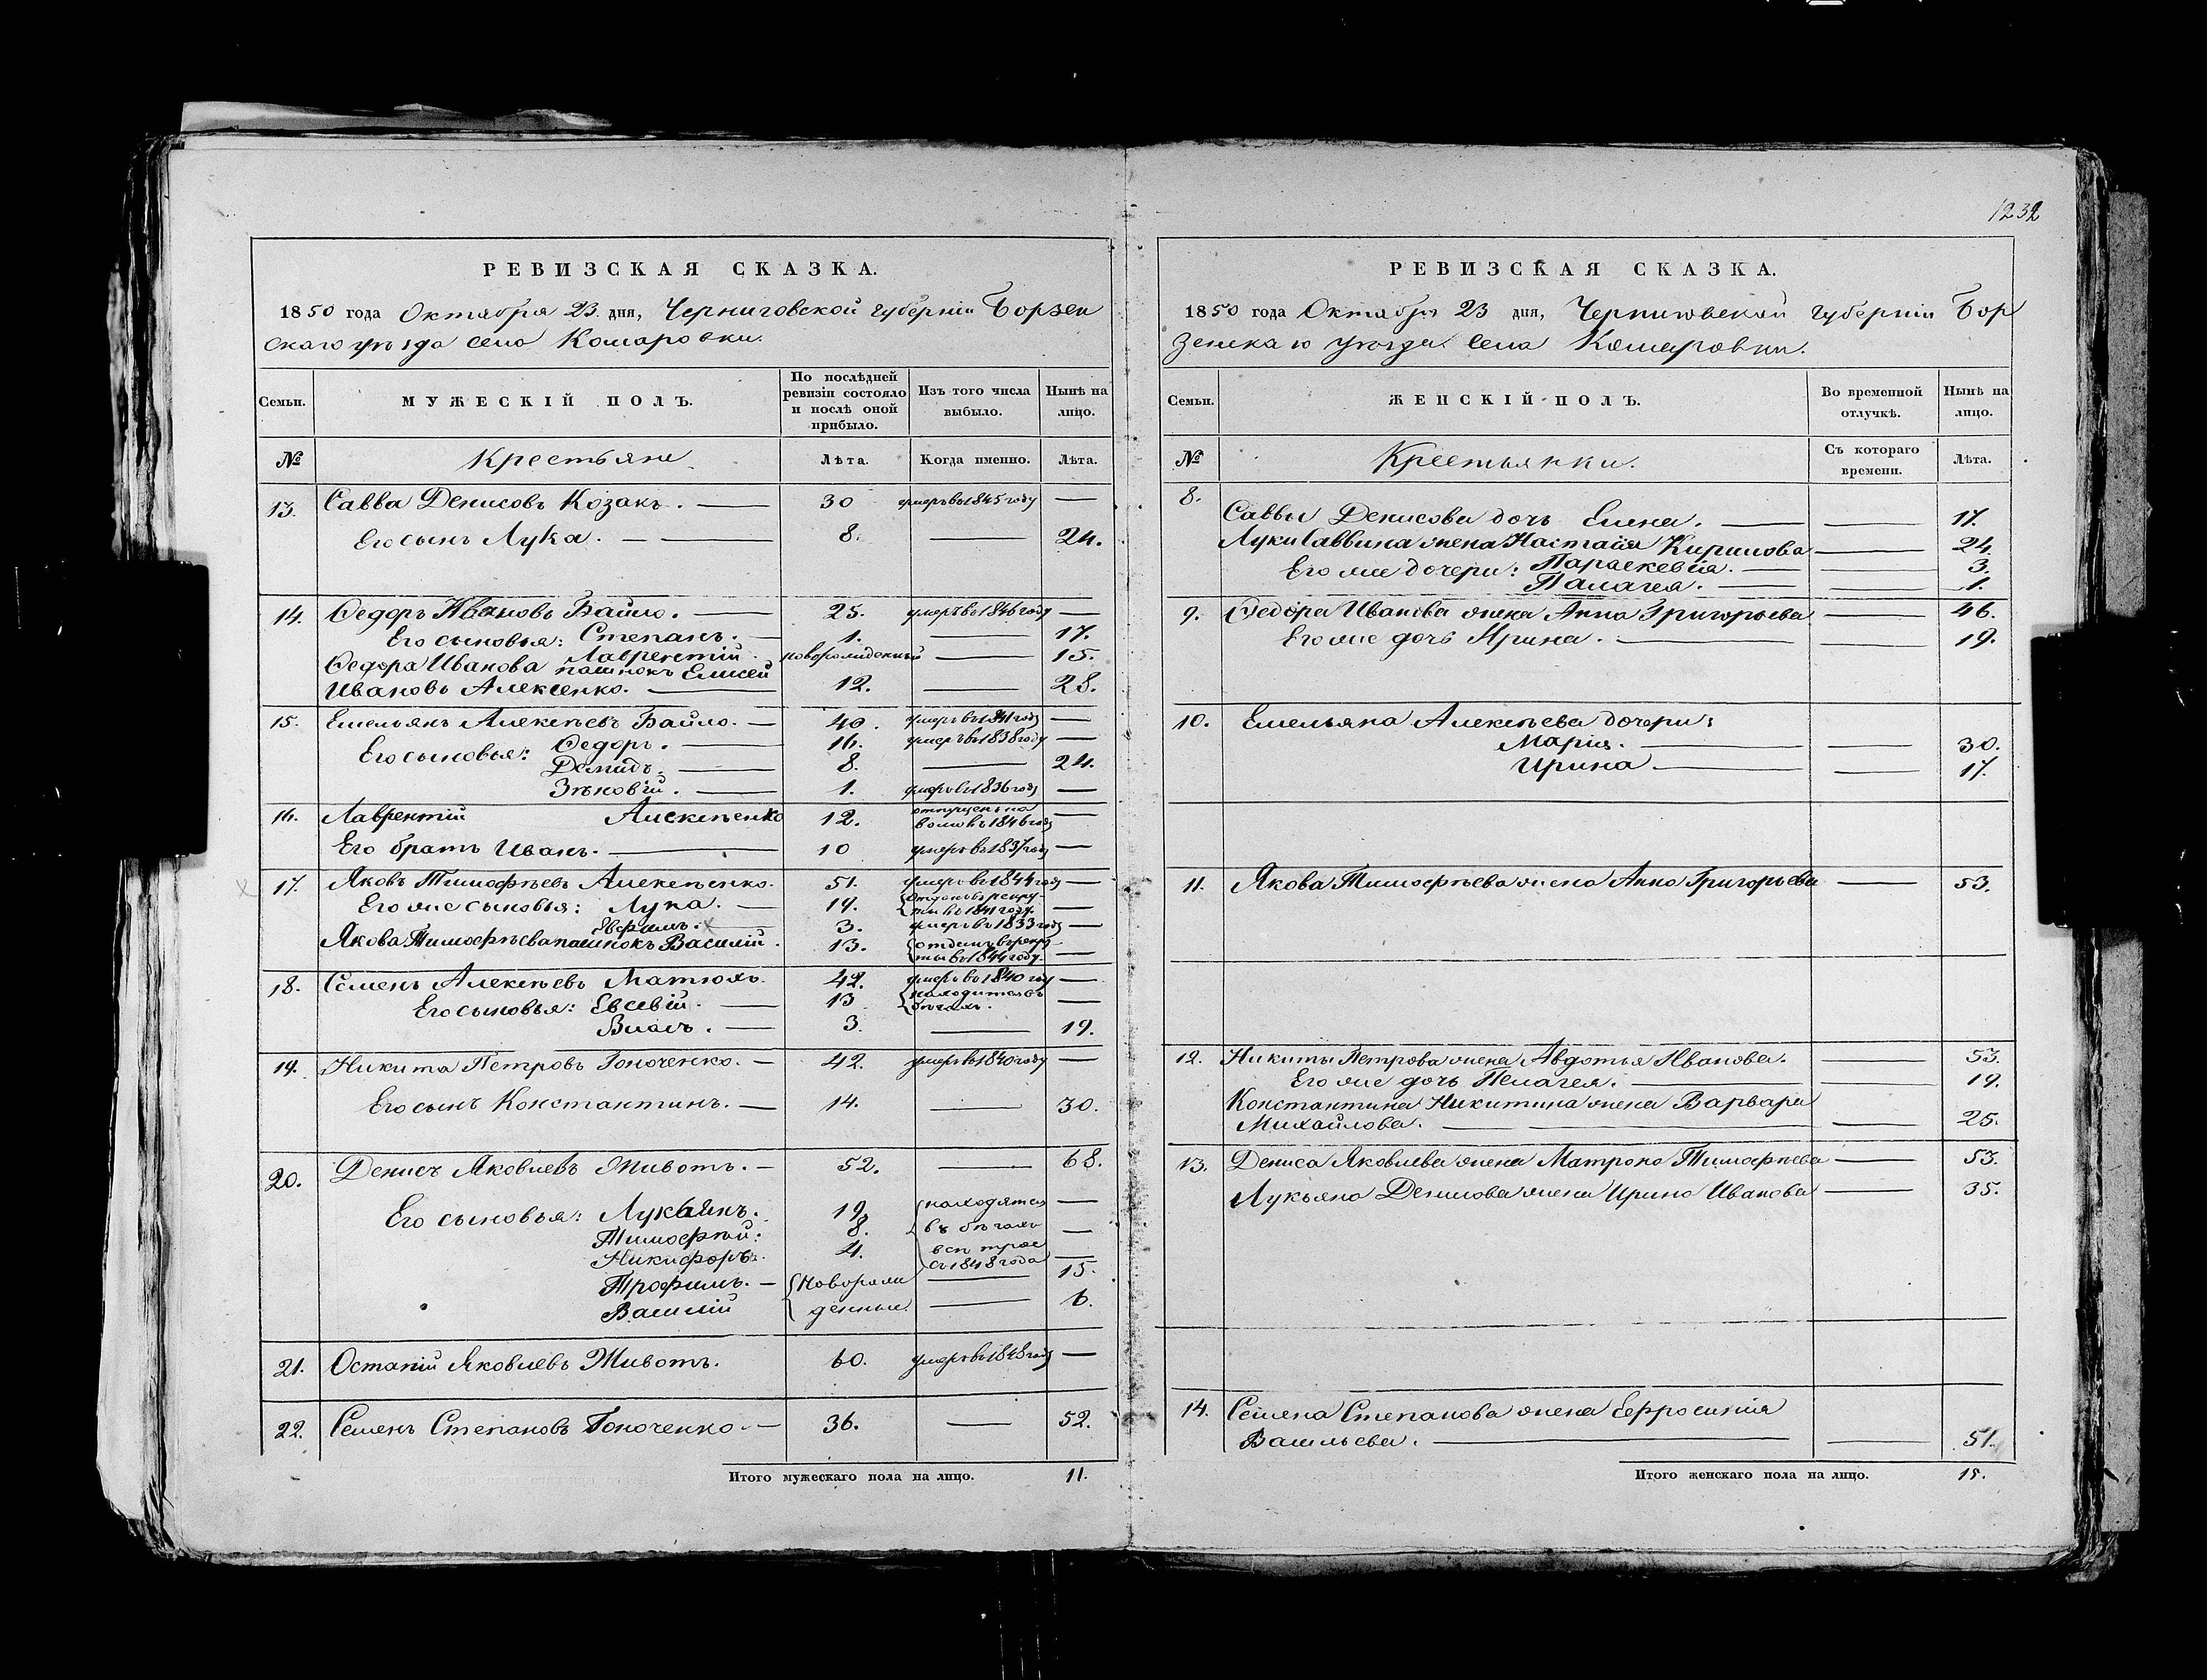 1232
РЕВИЗСКАЯ СКАЗКА.
1850 года Октября 23 дня, Черниговской губерніи Борзен
скаго уѣзда села Комаровки.
Семьи. МУЖЕСКІЙ ПОЛЪ. По послѣдней ревизіи состояло и послѣ оной прибыло. Изъ того числа выбыло. Нынѣ на лицо.
№ Крестьяне Лѣта. Когда именно. Лѣта.
13. Савва Денисовъ Козакъ. — 30 умеръ въ 1845 году —
Его сынъ Лука. — 8. — 24.
14. Федоръ Ивановъ Байло. — 25. умеръ въ 1846 году —
Его сыновья: Степанъ. — 1. — 17.
Лаврентій. новорожденный — 15.
Федора Иванова пашнокъ Елисей
Ивановъ Алексенко. — 12. — 28.
15. Емельянъ Алексѣевъ Байло. — 40. умеръ въ 1841 году —
Его сыновья: Федоръ. — 16. умеръ въ 1838 году —
Демидъ. — 8. — 24.
Зѣновій. — 1. умеръ въ 1836 году —
16. Лаврентій Алексѣенко 12. отпущенъ на
волю въ 1846 году —
Его братъ Иванъ. — 10 умеръ въ 1837 году —
17. Яковъ Тимофѣевъ Алексѣенко. 51. умеръ въ 1844 году —
Его же сыновья: Лука. — 19. отданъ въ рекру-
ты въ 1841 году. —
Евфимъ. 3. умеръ въ 1833 году —
Якова Тимофѣева пашнокъ Василій. 13. отданъ въ рекру-
ты въ 1844 году. —
18. Семенъ Алексѣевъ Матюхъ. 42. умеръ въ 1840 году —
Его сыновья: Евсевій. — 13 находится въ
бѣгахъ. —
Власъ. — 3. — 19.
19. Никита Петровъ Гоноченко. — 42. умеръ въ 1840 году —
Его сынъ Константинъ. — 14. — 30.
20. Денисъ Яковлевъ Животъ. — 52. — 68.
Его сыновья: Лукьянъ. 19. находятся —
Тимофѣй: 8. въ бѣгахъ —
Никифоръ: 4. всѣ трое
съ 1848 года —
Трофимъ. — новорож — 15.
Василій денные. — 6.
21. Остапій Яковлевъ Животъ. 60. умеръ въ 1848 году —
22. Семенъ Степановъ Гоноченко — 36. — 52.
Итого мужескаго пола на лицо. 11.
РЕВИЗСКАЯ СКАЗКА.
1850 года Октября 23 дня, Черниговской губерніи Бор
зенскаго уѣзда села Комаровки.
Семьи. ЖЕНСКІЙ ПОЛЪ. Во временной отлучкѣ. Нынѣ на лицо.
№ Крестьянки. Съ котораго времени. Лѣта.
8. Саввы Денисова дочь Елена. — — 17.
Луки Саввина жена Настасія Кирилова — 24.
Его же дочери: Параскевія. — — 3.
Палагея. — — 1.
9. Федора Иванова жена Анна Григорьева — 46.
Его же дочь Ирина. — — 19.
10. Емельяна Алексѣева дочери:
Марія. — — 30.
Ирина — — 17.
11. Якова Тимофѣева жена Анна Григорьева — 53.
12. Никиты Петрова жена Авдотья Иванова. — 53.
Его же дочь Пелагея. — — 19.
Константина Никитина жена Варвара
Михайлова. — — 25.
13. Дениса Яковлева жена Матрона Тимофѣева — 53.
Лукьяна Денисова жена Ирина Иванова — 35.
14. Семена Степанова жена Ефросинія
Васильева. — — 51.
Итого женскаго пола на лицо. 15.